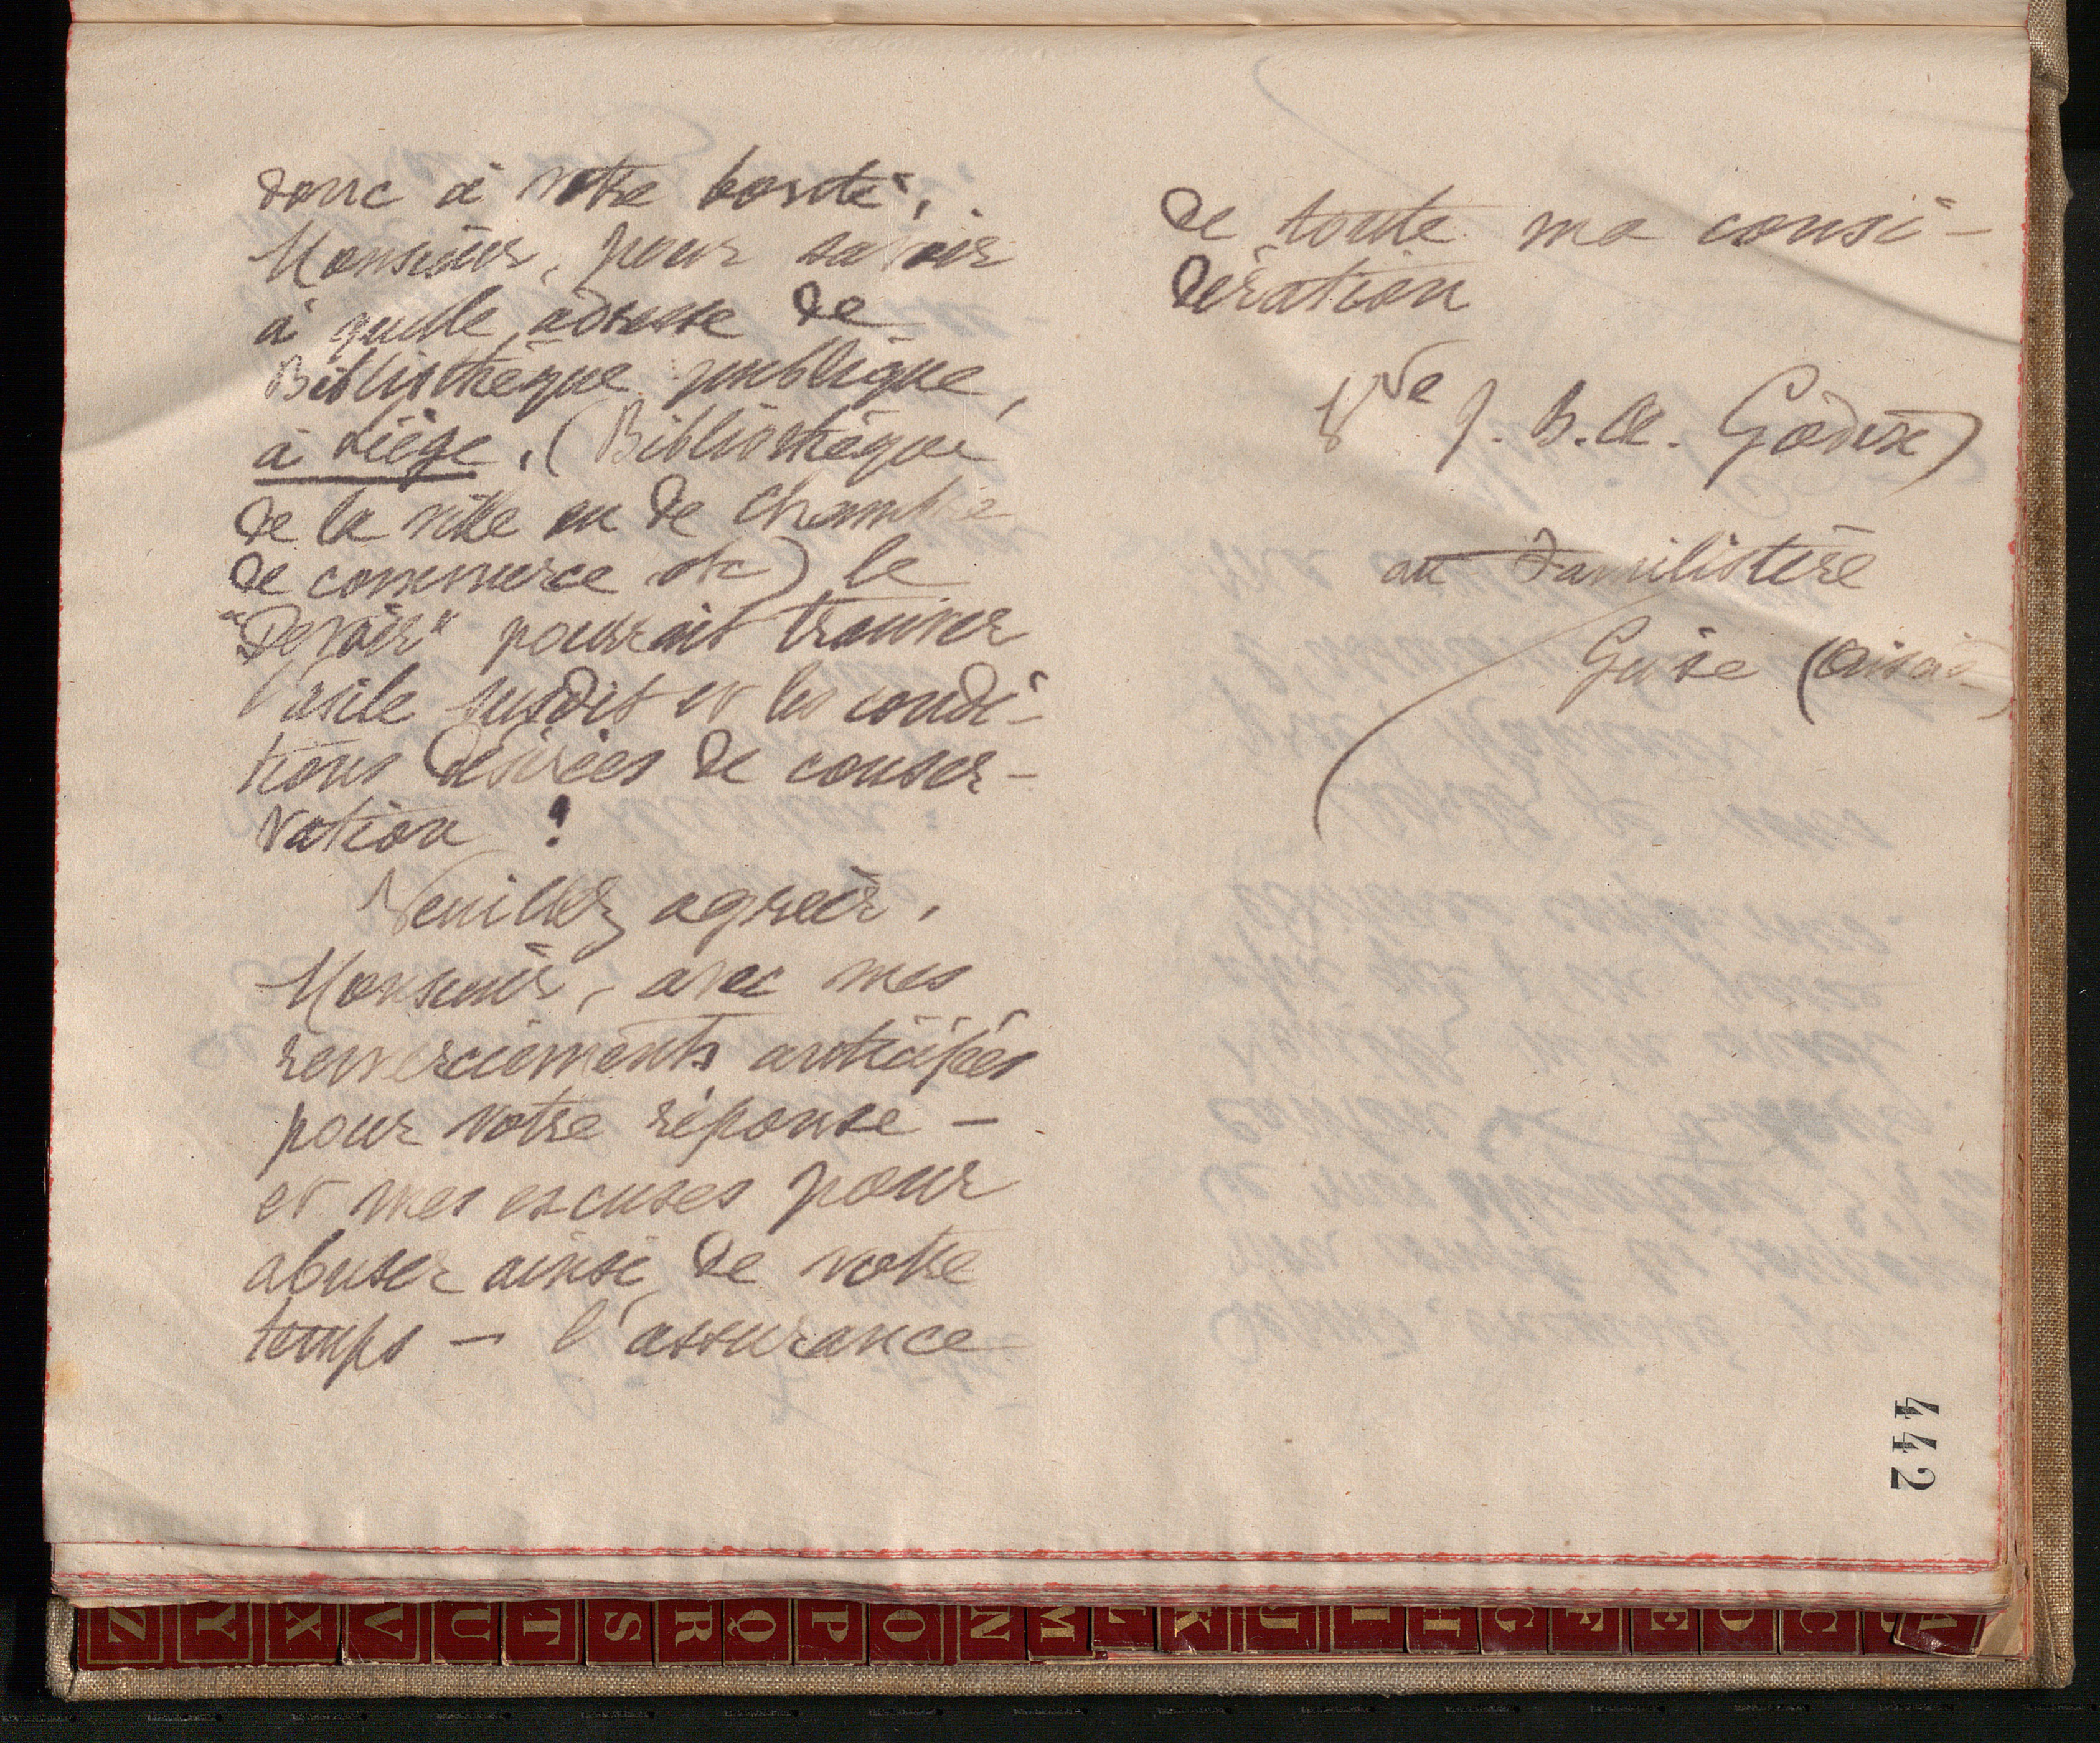 donc à votre bonté,
Monsieur, pour savoir
à quelle adresse de
Bibliothèque publique,
à Liège, (Bibliothèque
de la ville ou de Chambre
de commerce etc) le
"Devoir" pourrait trouver
l'asile susdit et les condi-
tions désirées de conser-
vation ?
Veuillez agréer,
Monsieur, avec mes
remerciements anticipés
pour votre réponse –
et mes excuses pour
abuser ainsi de votre
temps – l'assurance
de toute ma consi-
dération
Vve J. B. A. Godin
au Familistère
Guise (Aisne)
442
Z Y X V U T S R Q P O N M L K J I H G F E D C B A